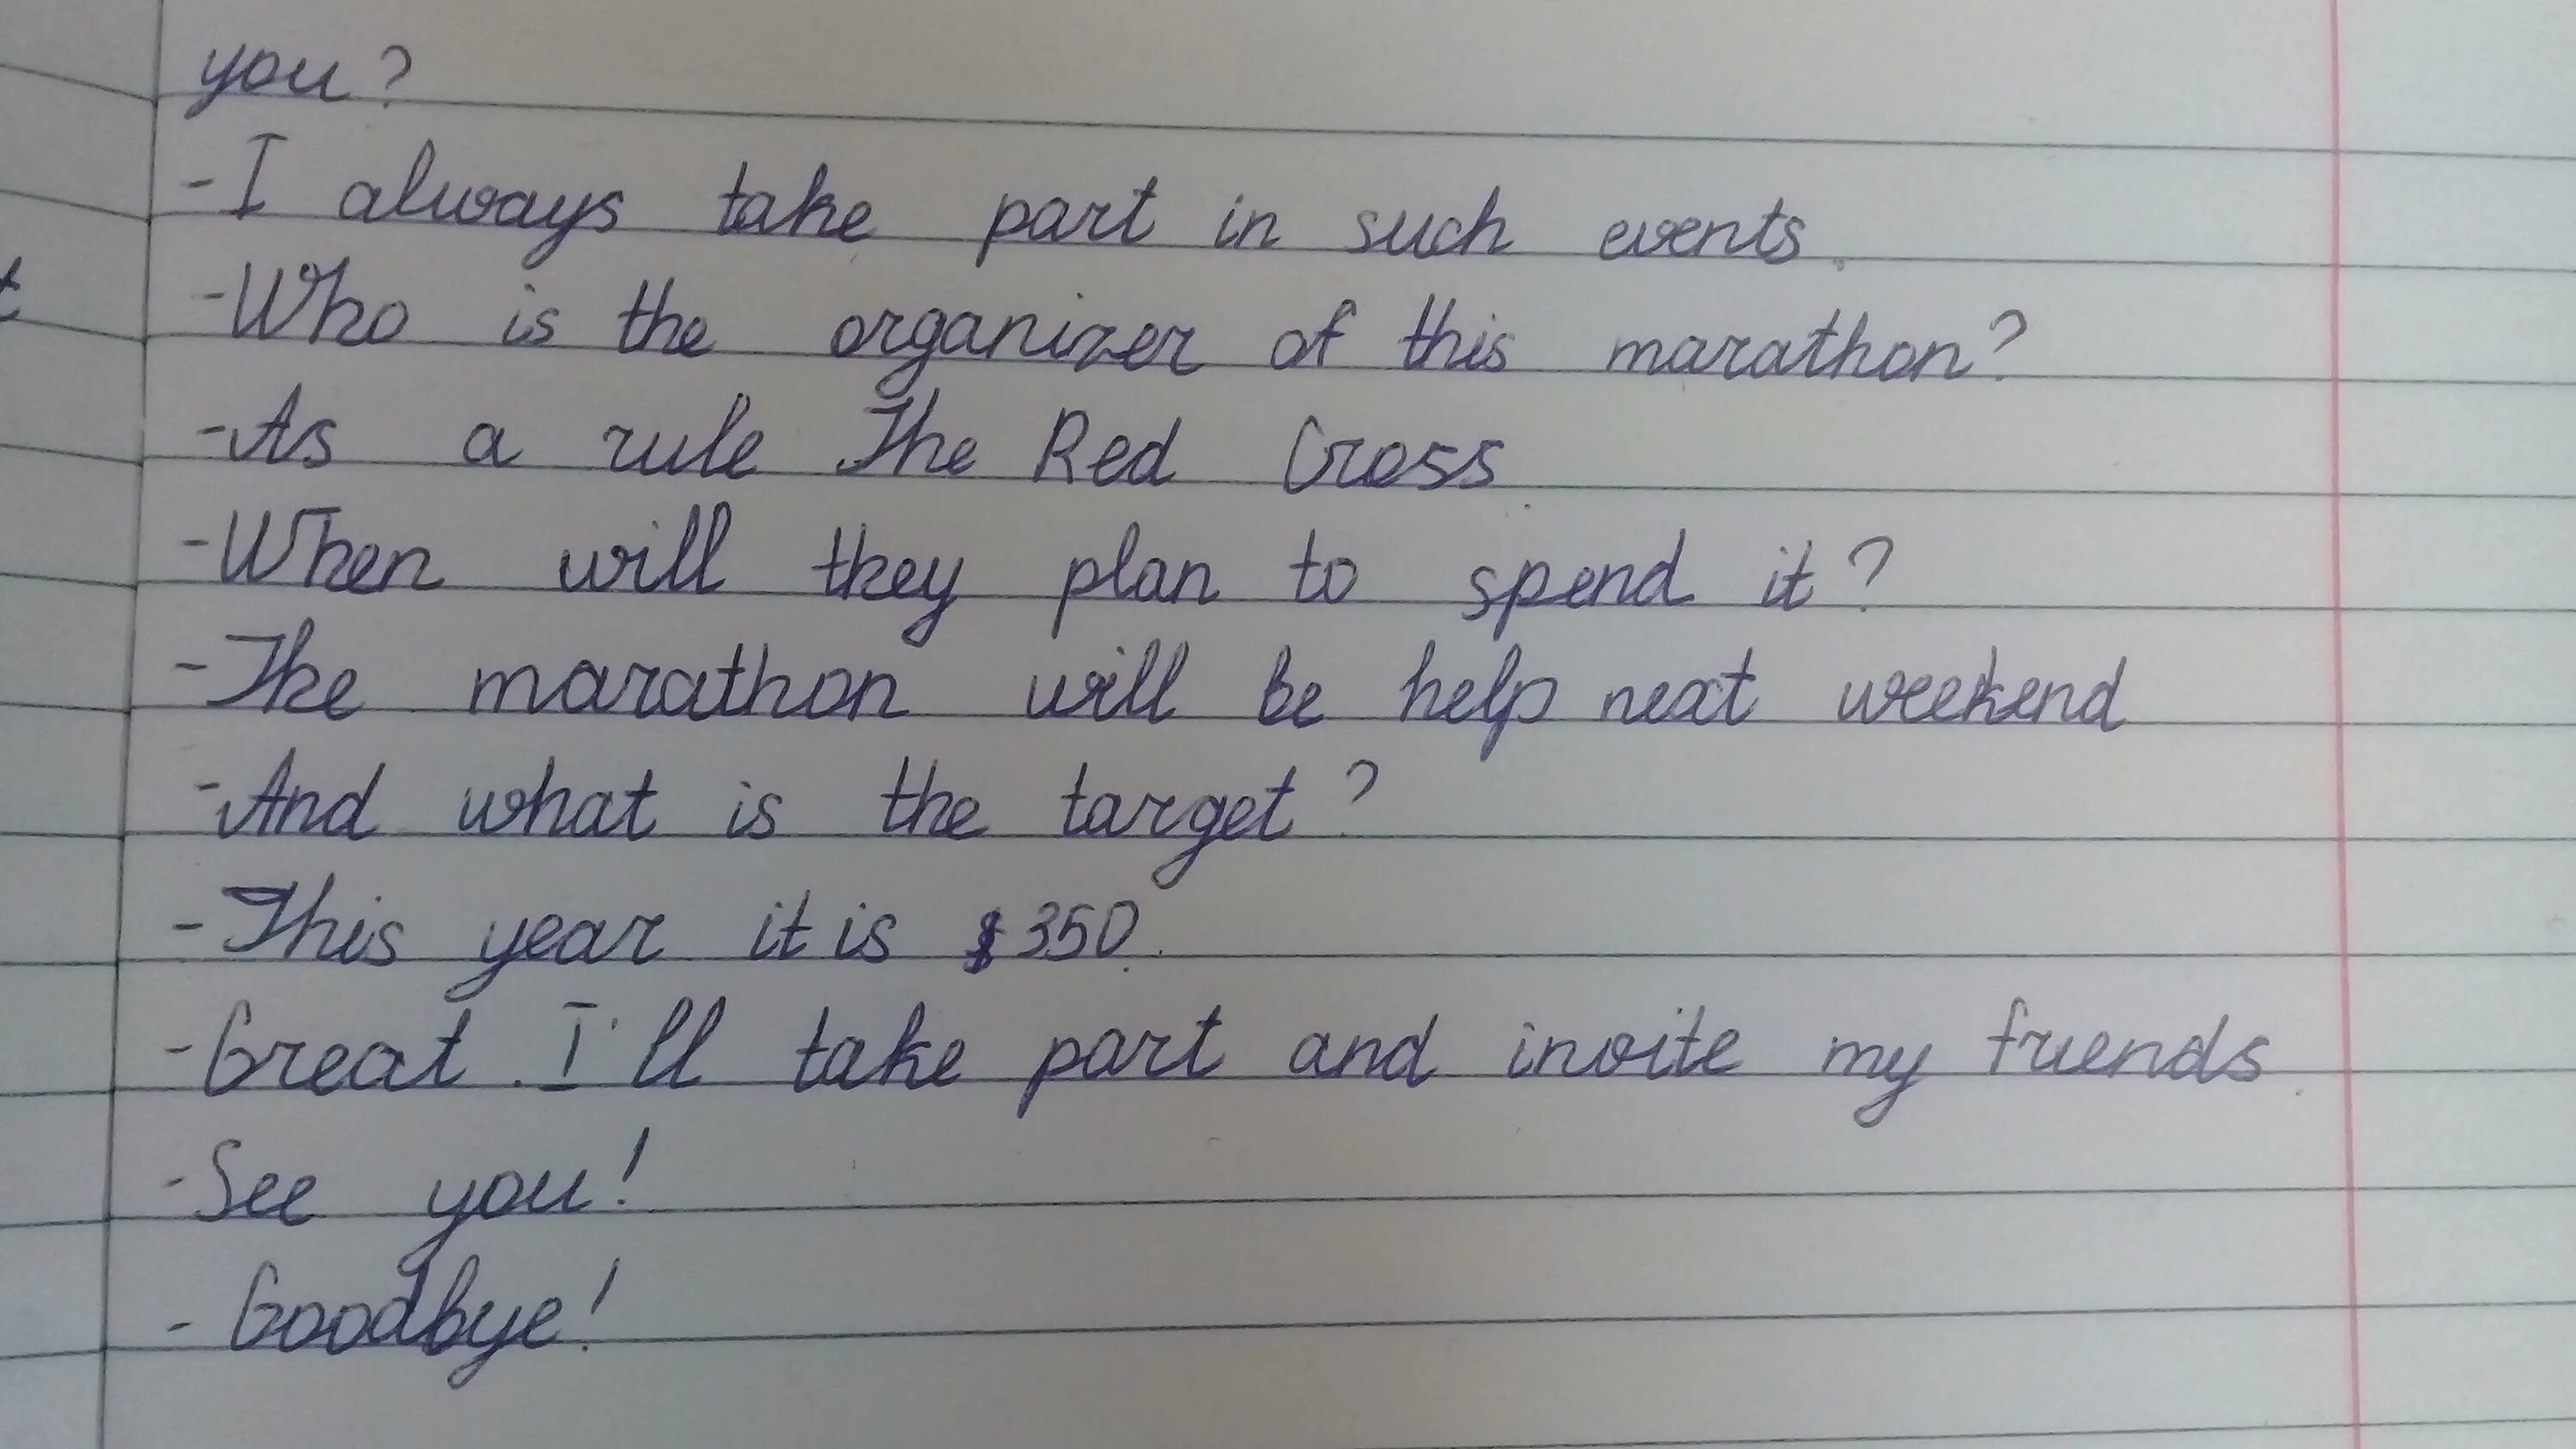 you?
-I always take part in such events.
-Who is the organizer of this marathon?
-As a rule The Red Cross.
-When will they plan to spend it?
-The marathon will be help next weekend
-And what is the target?
-This year it is $350.
-Great. I'll take part and invite my friends.
-See you!
- Goodbye!